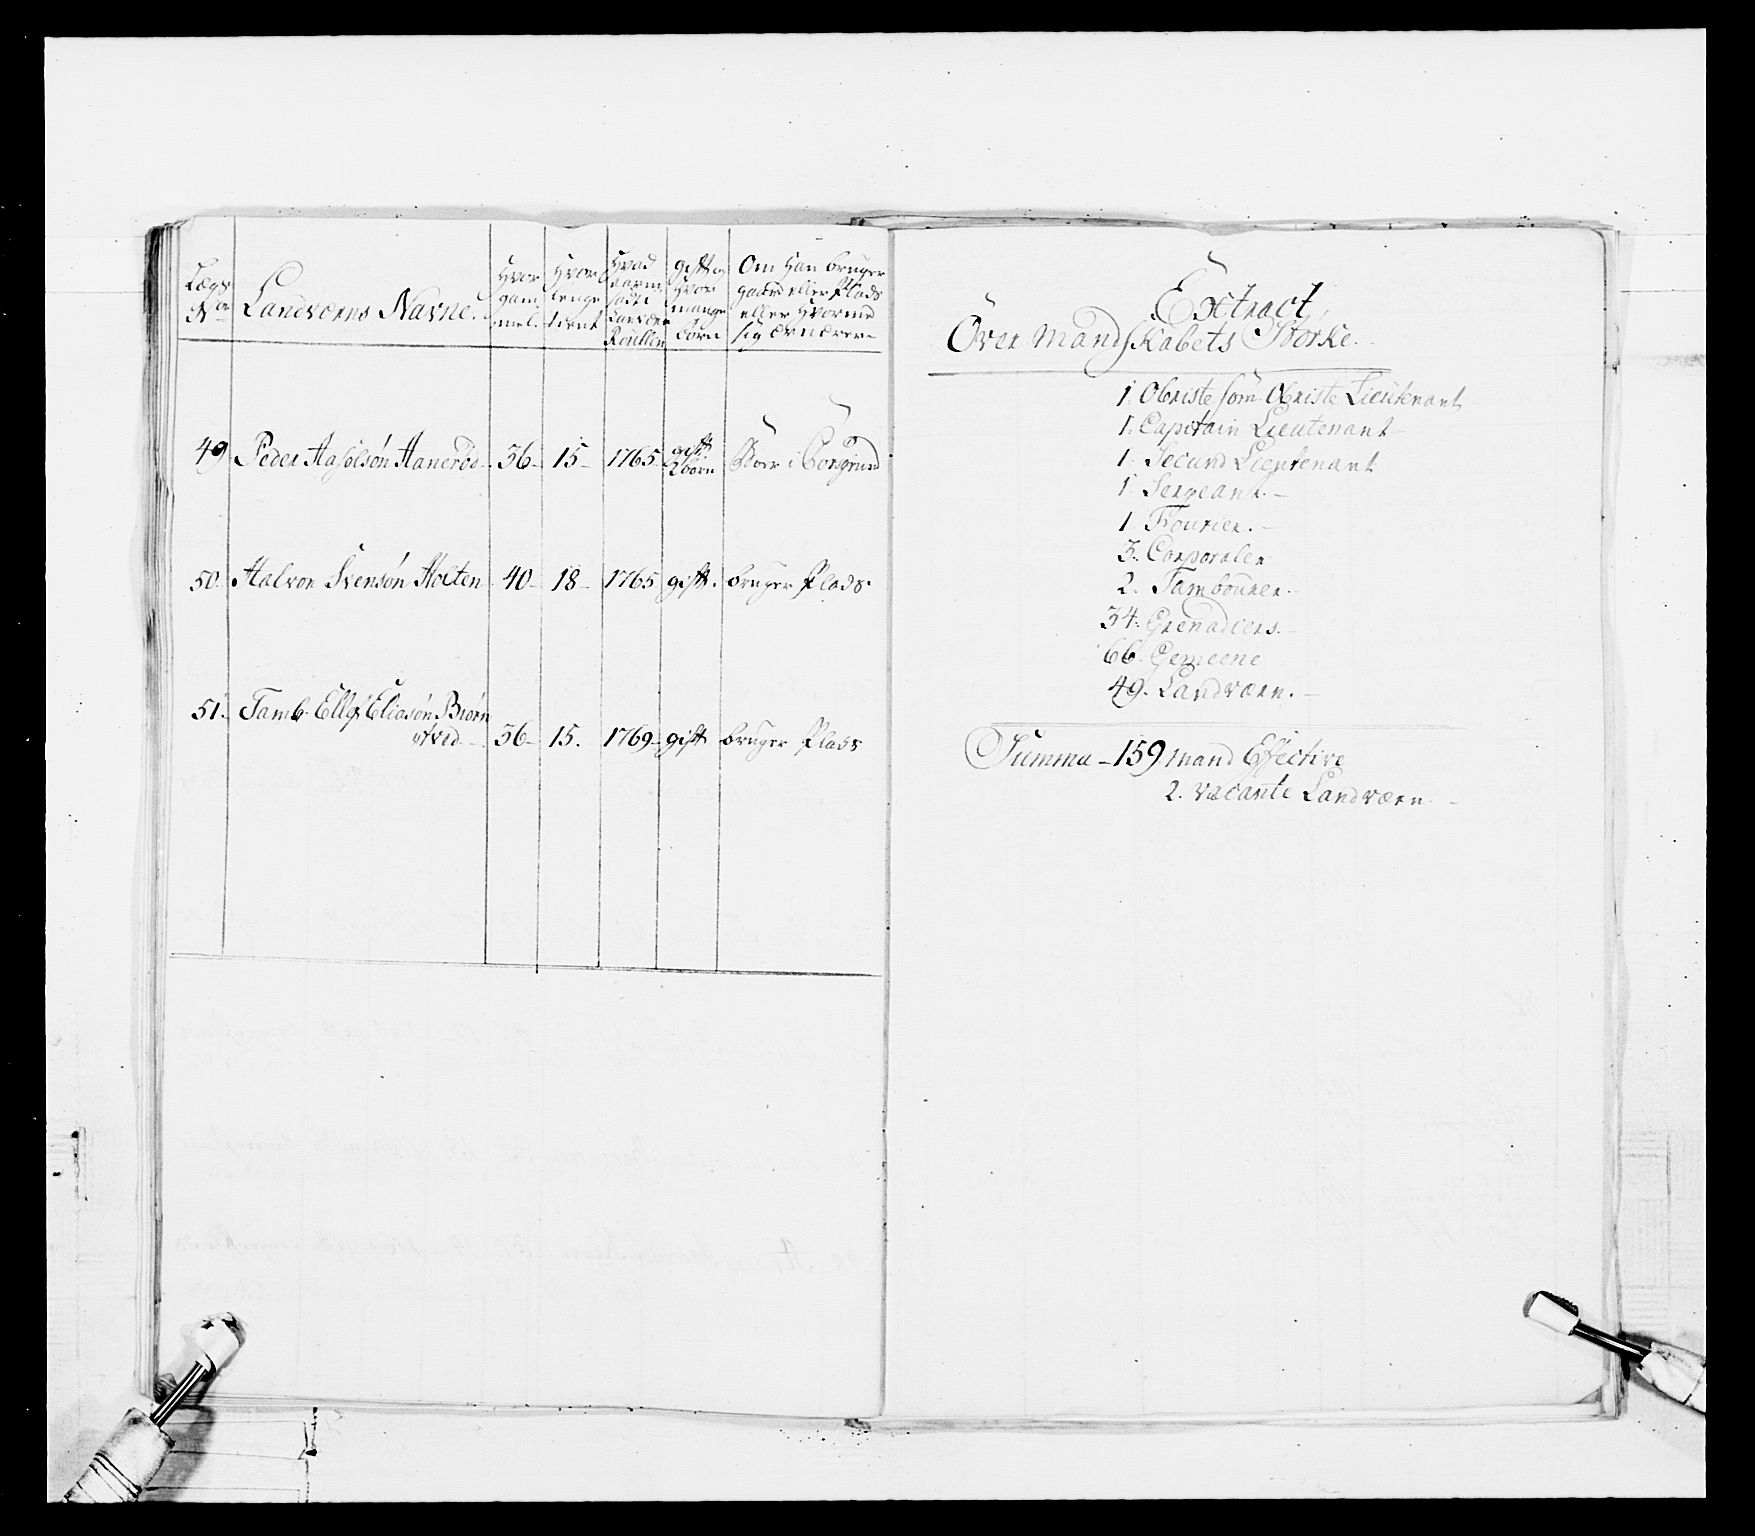 Lægs No
Landværns Navne.
Hvor gam mel.
Hvor lenge tient
Hvad Landvær Roullen
gift og Hvor mange børn
Om Han bruger
gaard eller Plads
eller Hvormed
sig Ærnærer
49. Peder Aasolsøn Hanerød 36 15 1765 gift. 2 børn Boer i Porsgrund
50. Halvor Svensøn Holten 40 18 1765 gift. bruger Plads.
51. Tamb. Ellef Eliasøn Biørn
tved 36 15. 1769 gift bruger Plads
Extract,
Over Mandskabets Storke.
1. Obriste som Obriste Lieutenant
1. Capitain Lieutenant
1. Secund Lieutenant
1. Sergeant.
1. Fourier.
3. Corporaler
2. Tambourer.
34. Grenadiers.
66. Gemeene
49. Landværn.
Summa 159 mand Effective
2. vacante Landværn.